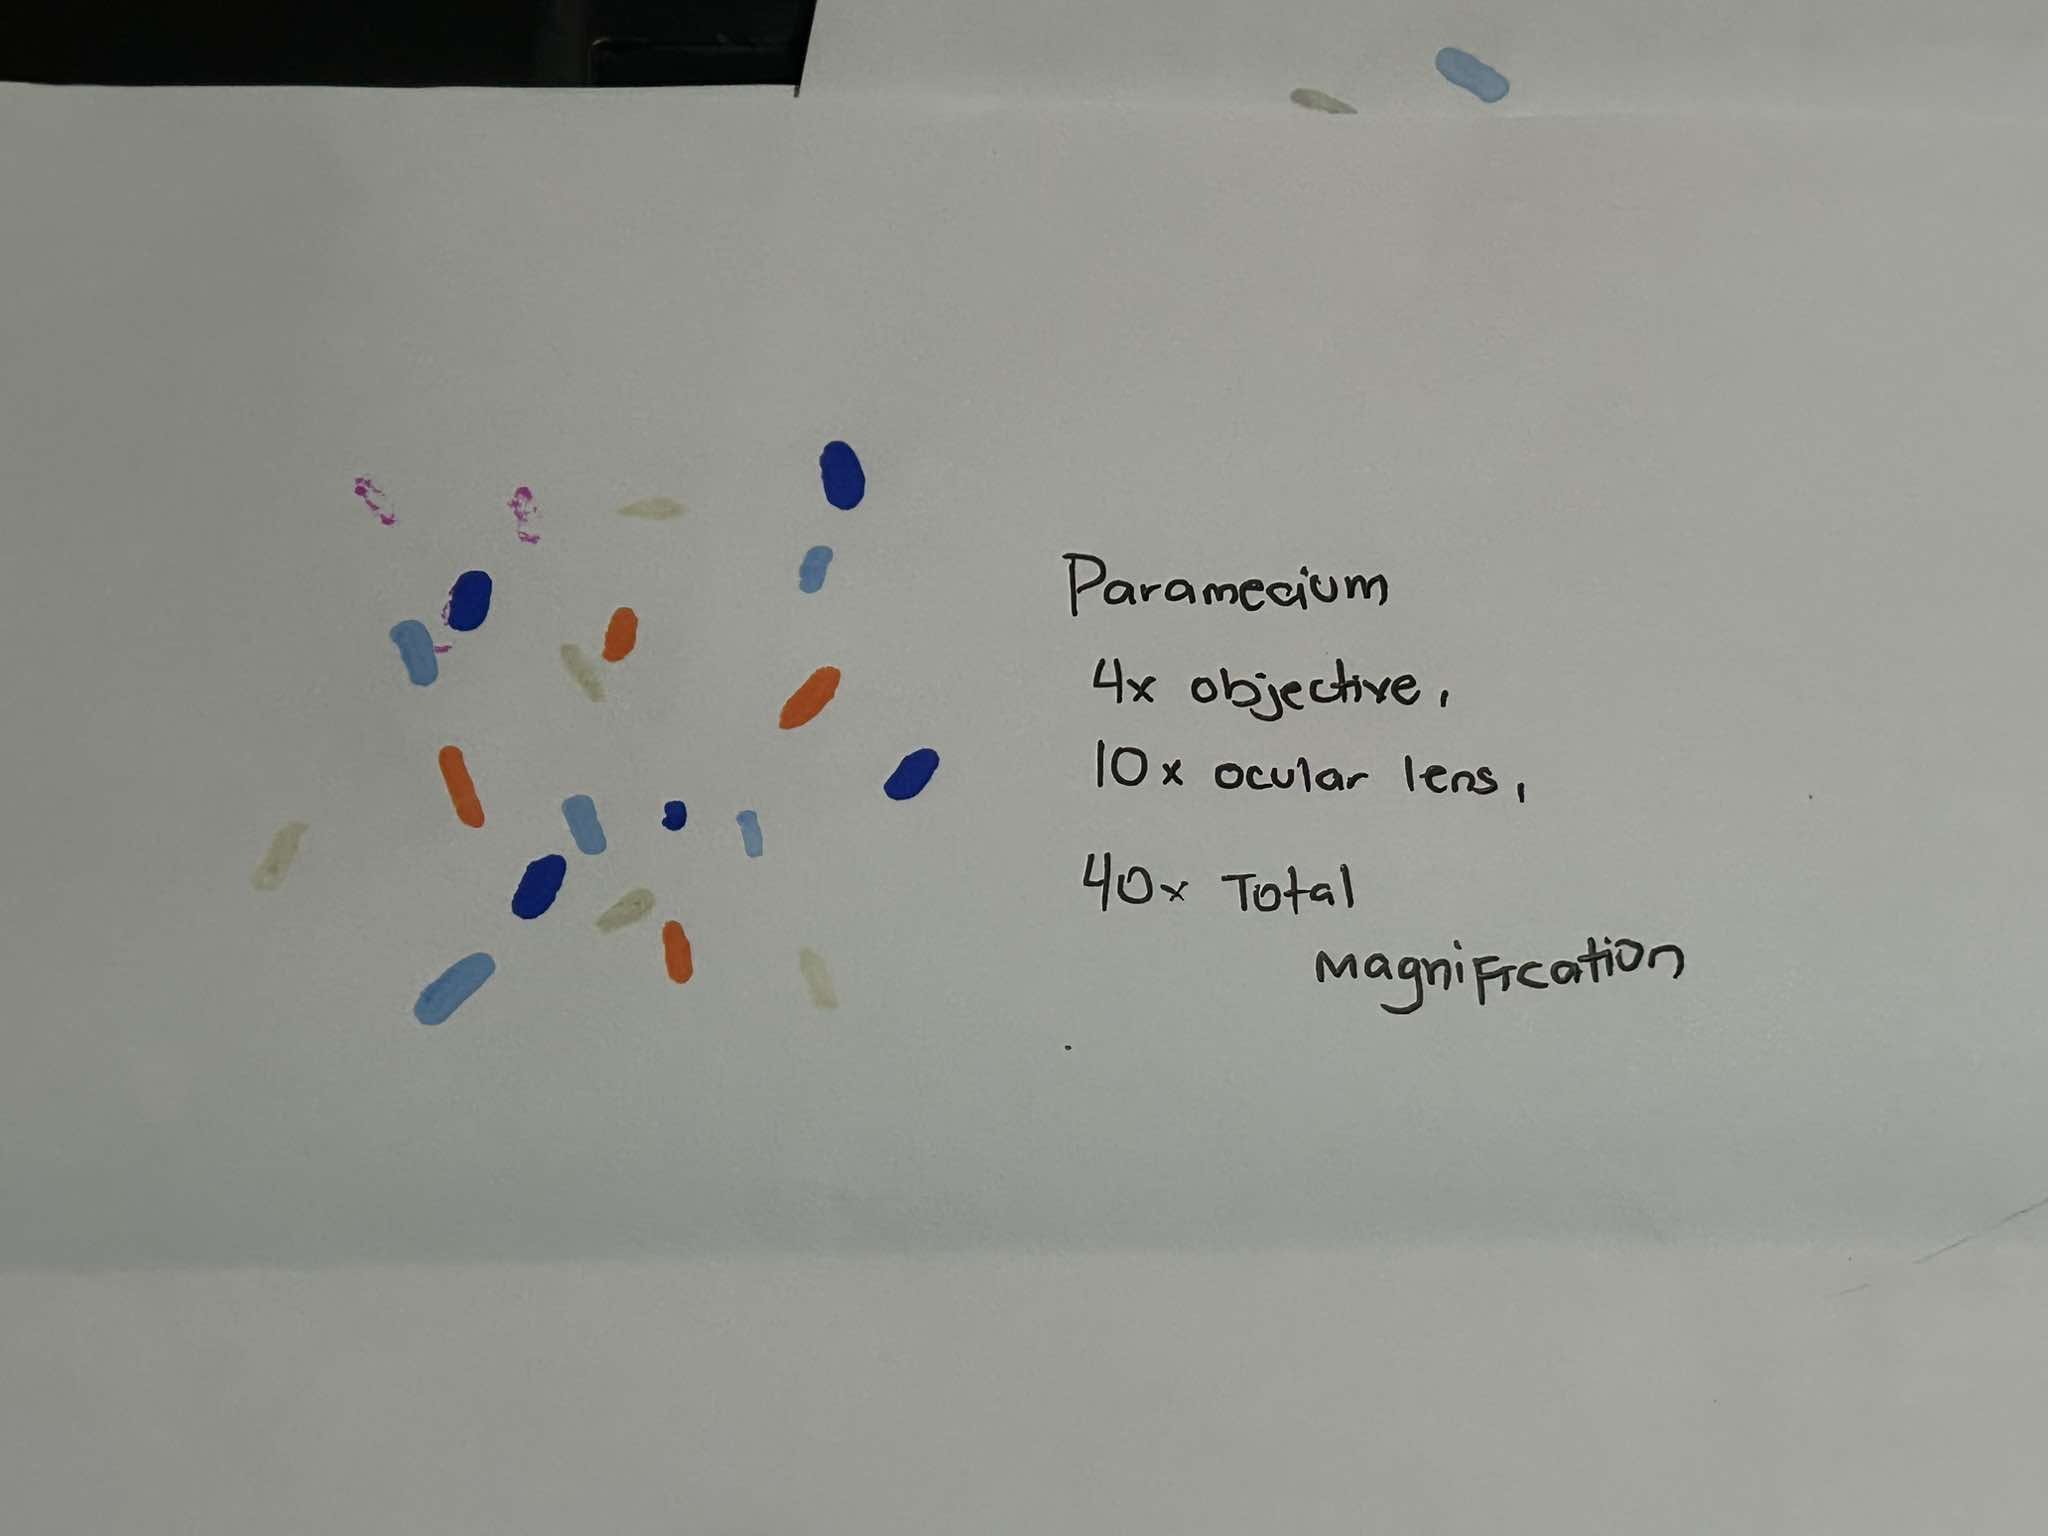 Paramecium
4x objective,
10x ocular lens,
40x Total
magnification